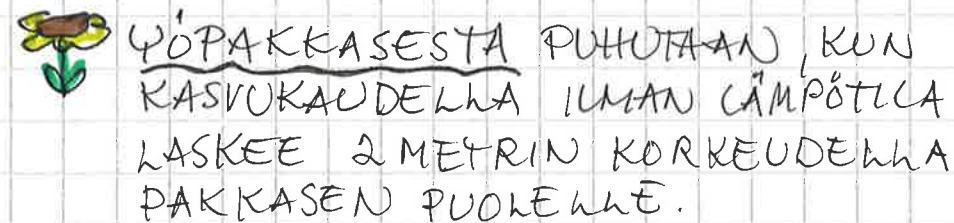 YÖPAKKASESTA PUHUTAAN, KUN
KASVUKAUDELLA ILMAN LÄMPÖTILA
LASKEE 2 METRIN KORKEUDELLA
PAKKASEN PUOLELLE.